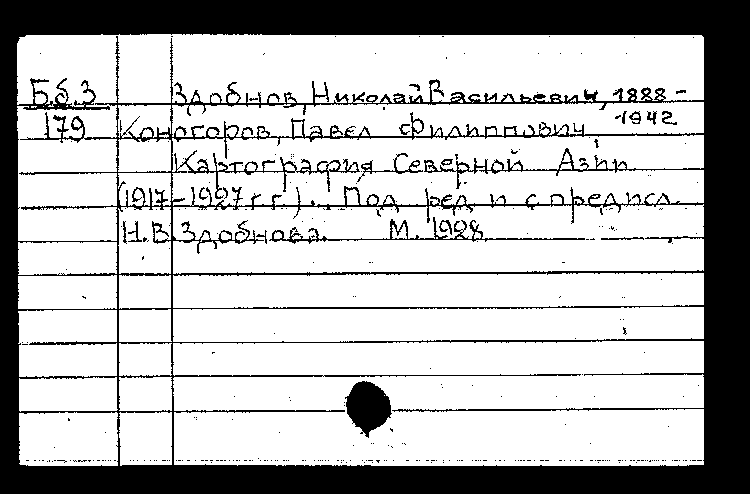 Б.б.З Здобнов, Николай Васильевич, 1888-
1942
179 Коногоров, Павел Филиппович
Картография Северной Азии
(1917-1927 г.г.). Под ред и с предисл.
Н.В.Здобнова. М. 1928